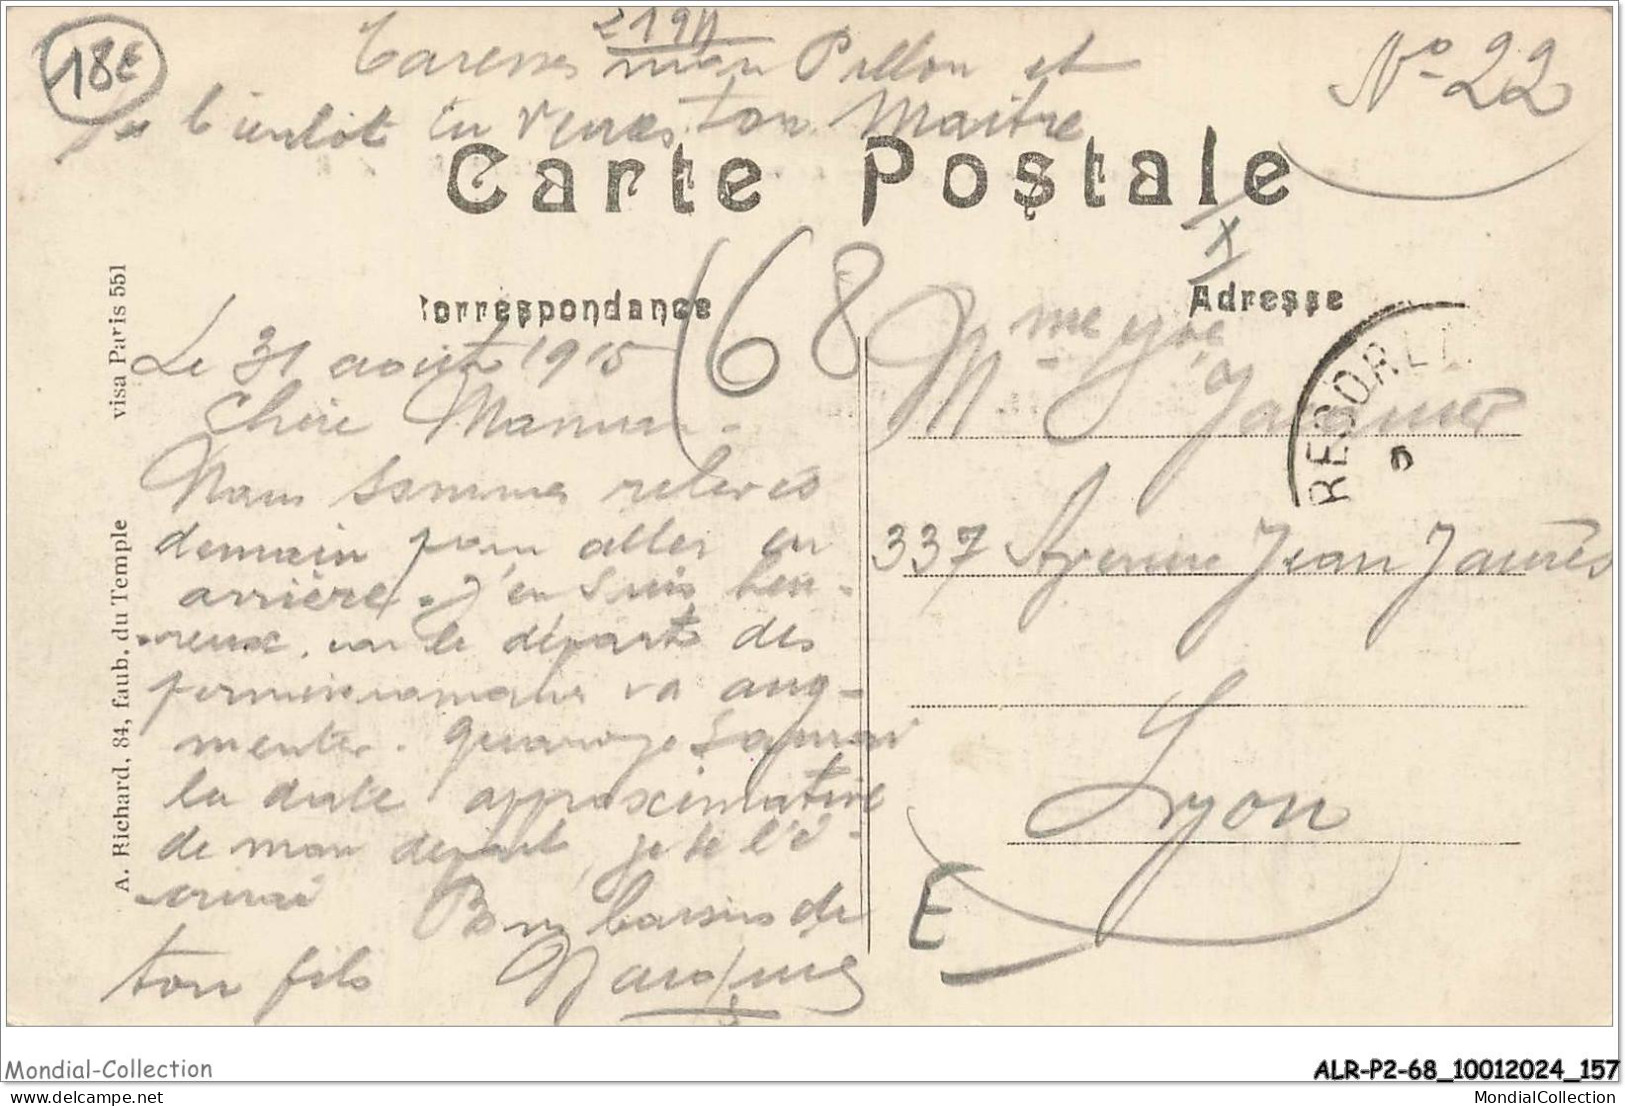 18E
Caresses mon Pillon et
bientôt tu verras ton Maître
N° 22
Carte Postale
Correspondance
Adresse
68
Le 31 août 1915
Chère Maman.
Nous sommes relevés
demain pour aller en
arrière. J'en suis heu-
-reux, car le départ des
permissionnaires va aug-
menter. Quand je saurai
la date approximative
de mon départ, je te l'é-
-crirai
Bons baisers de
ton fils
Mme Vve Jacquier
337 Avenue Jean Jaurès
Lyon
E
A. Richard, 84, faub. du Temple
visa Paris 551
Mondial-Collection
ALR-P2-68_10012024_157
MondialCollection